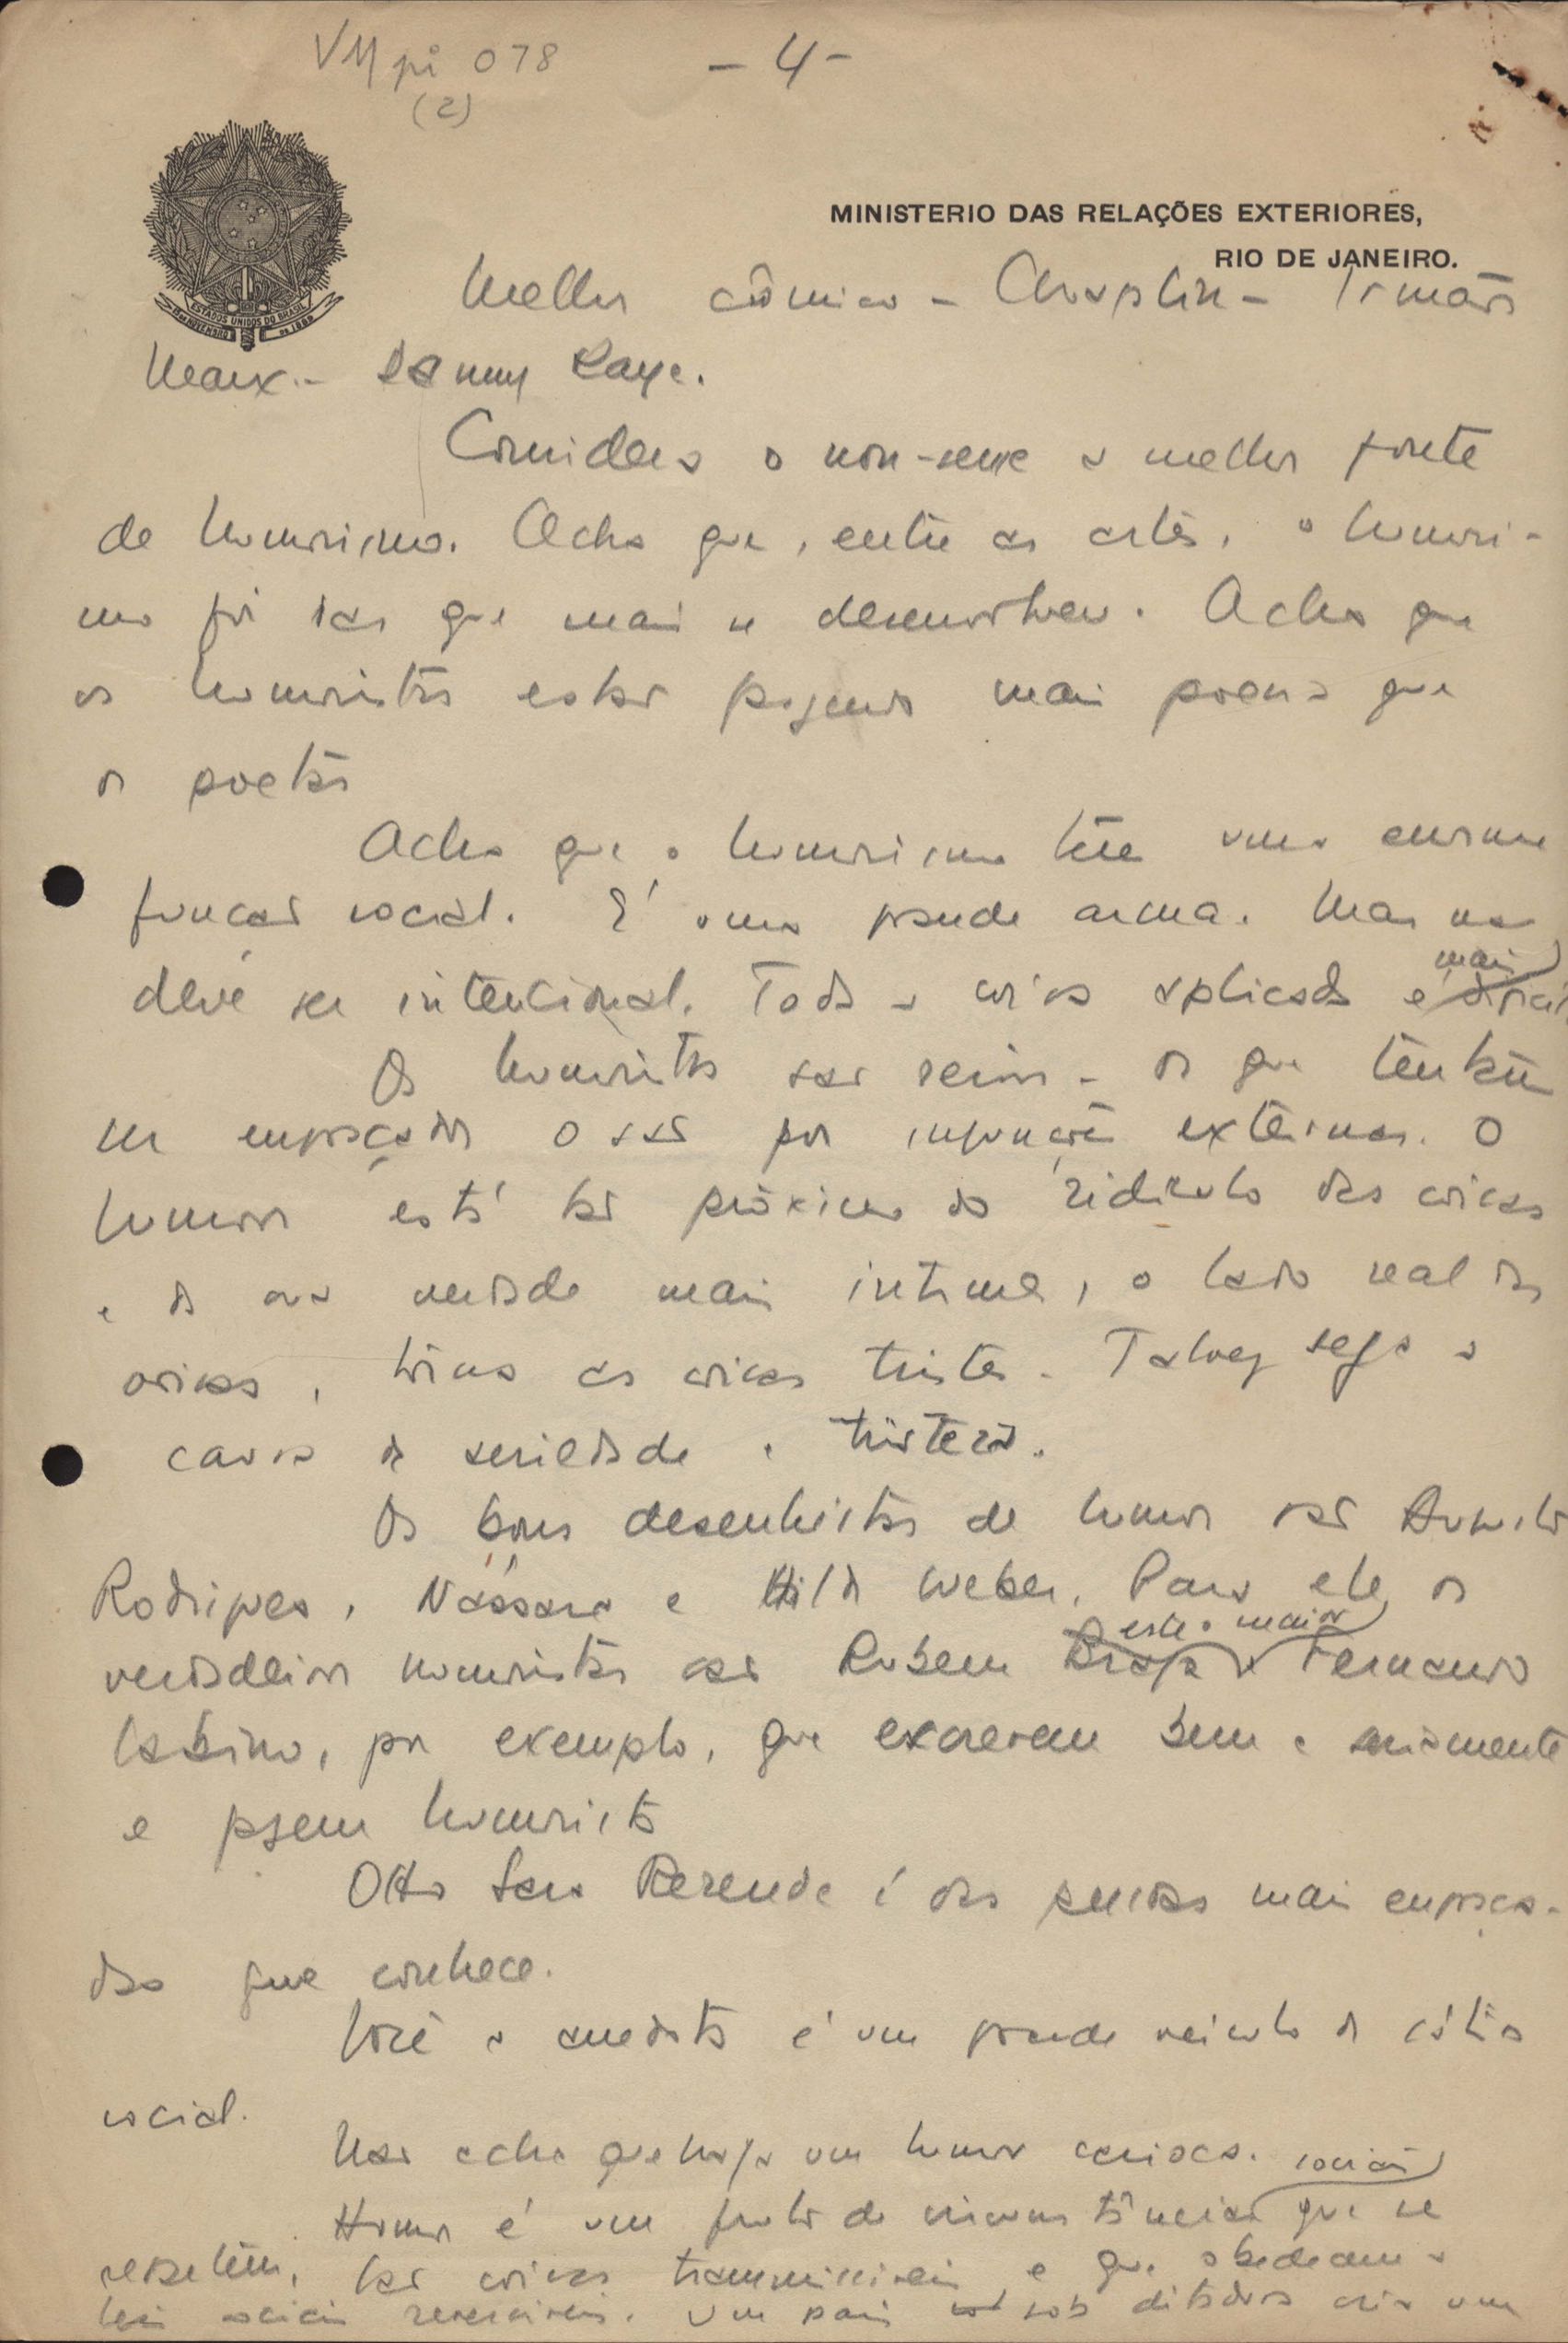 VM pi 078
(2)
- 4 -
ESTADOS UNIDOS DO BRASIL
15 DE NOVEMBRO DE 1889
MINISTERIO DAS RELAÇÕES EXTERIORES,
RIO DE JANEIRO.
Melhor cômico - Chaplin - Irmãos
Marx. - Danny Kaye.
Considera o non-sense a melhor fonte
de humorismo. Acha que, entre as artes, o humoris-
mo foi das que mais se desenvolveu. Acha que
os humoristas estão fazendo mais poesia que
os poetas
Acha que o humorismo tem uma enorme
função social. É uma grande arma. Mas não
deve ser intencional. Toda a coisa aplicada é mais
Os humoristas são sérios - os que tentam
ser engraçados o são por injunções externas. O
humor está tão próximo do ridículo das coisas
e da sua verdade mais intima, o lado real das
coisas, torna as coisas tristes. Talvez seja a
causa da seriedade e tristeza.
Os bons desenhistas de humor são Augusto
Rodrigues, Nássara e Hilde Weber. Para ele os
verdadeiros humoristas são Rubem Braga este o maior e Fernando
Sabino, por exemplo, que escrevem bem e seriamente
e fazem humorista
Otto Lara Rezende é das pessoas mais engraça-
das que conhece.
Você a anedota é um grande veículo de sátira
social.
Não acha que haja um humor carioca.
Humor é um fruto de circunstâncias sociais que se
repetem, são coisas transmissiveis e que obedecem a
leis sociais . Um país sob ditadura cria um